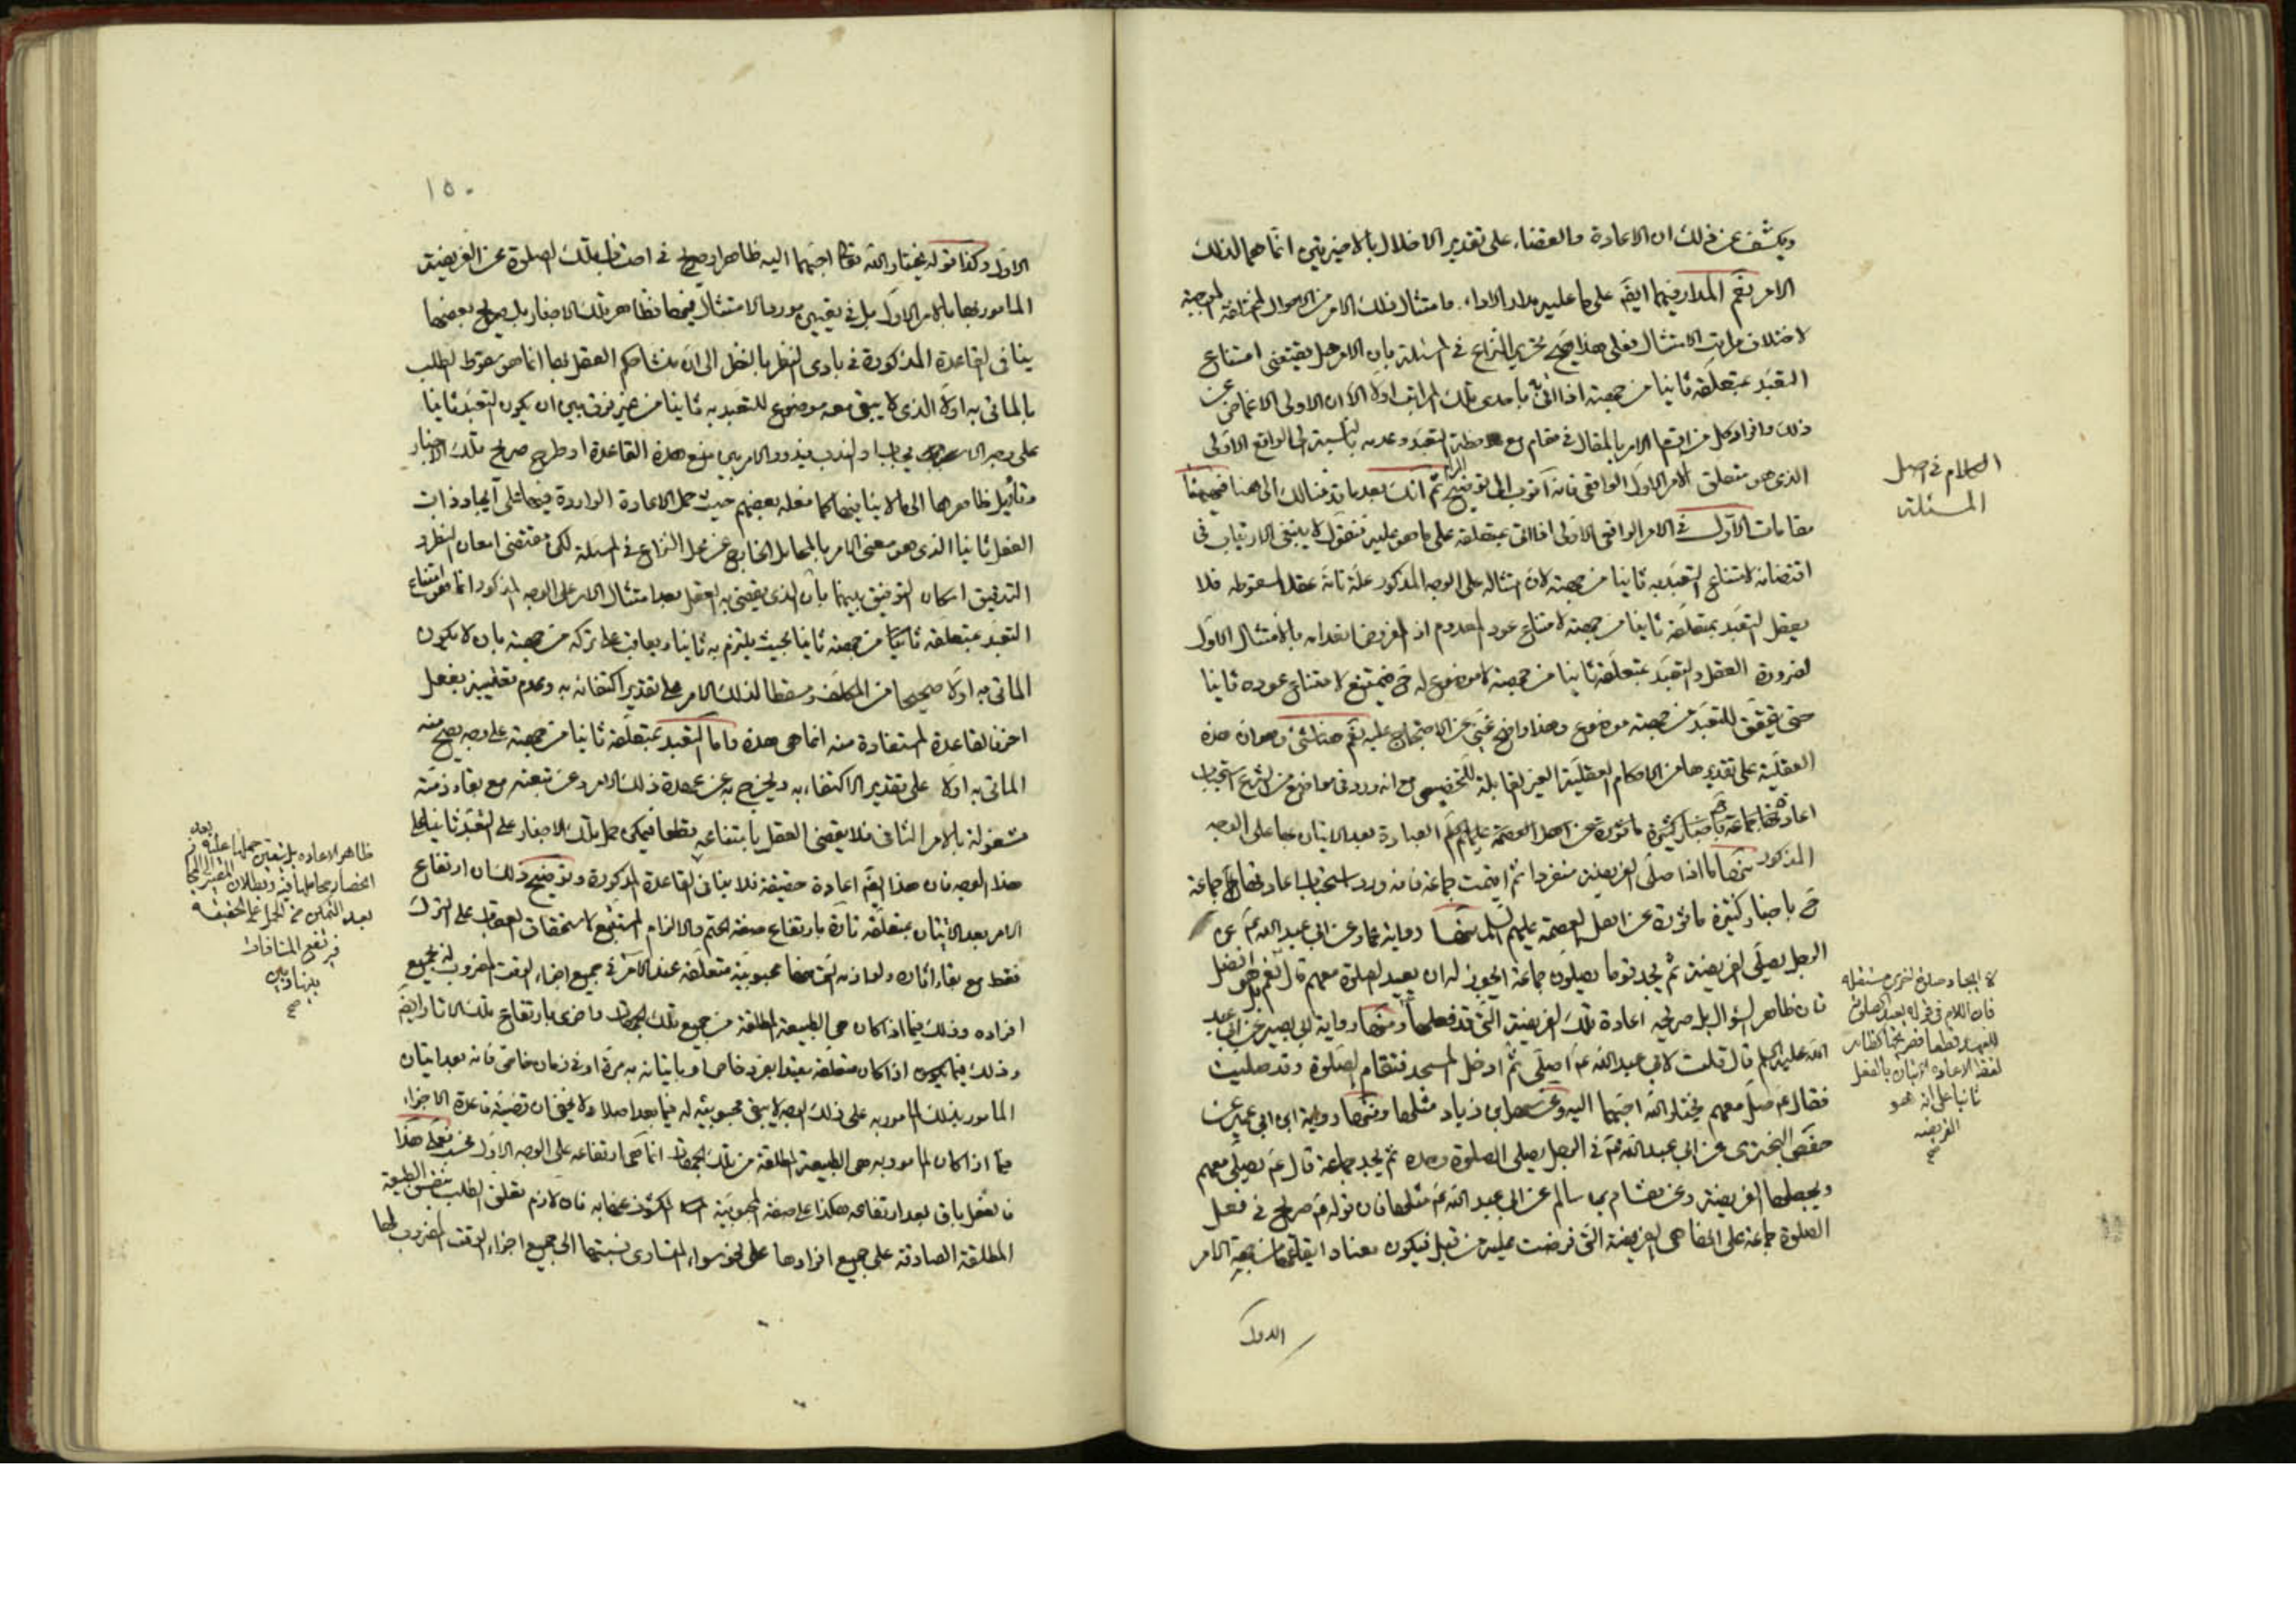 ويكشف عن ذلك ان الاعادة والقضاء على تقدير الاخلال بالاخيرتين انما هما لذلك
الامر نعم المدار فيهما ايضا على ما عليه مدار الاداء وامتثال ذلك الامر من الاحوال المختلفة الموجبة
لاختلاف مراتب الامتثال فعلى هذا صح تحرير النزاع في المسئلة بان الامر هل يقتضى امتناع
التعبد بمتعلقه ثانيا من جهته اذا اتى به باحدى تلك المراتب اولا الا ان الاولى الاغماض عن
ذلك وافراد كل من اقسام الامر بالمقال في مقام مع ملاحظة التعبد وعدمه بالنسبة الى الواقع الاولى
الذى هو متعلق الامر الاول الواقعى فانه اقرب الى توضيح المرام ثم انك بعد ما قدمنا لك الى هنا فهيهنا
مقامات الاول في الامر الواقعى الاولى اذا اتى بمتعلقه على ما هو عليه فنقول لا ينبغى الارتياب فى
اقتضائه لامتناع التعبد به ثانيا من جهته لان امتثاله على الوجه المذكور علة تامة عقلا لسقوطه فلا
يعقل التعبد بمتعلقه ثانيا من جهته لامتناع عود المعدوم اذ المفروض انعدامه بالامتثال الاول
لضرورة العقل والتعبد بمتعلقه ثانيا من جهته لا موضوع له ح فيمتنع لامتناع عوده ثانيا
حتى يتحقق للتعبد من جهته موضوع وهذا واضح غنى عن الاحتجاج عليه نعم هنا شئ وهو ان هذه
العقلية على تقديرها من الاحكام العقلية الغير القابلة للتخصيص مع انه ورد في مواضع من الشرع استحباب
اعادتها جماعة باخبار كثيرة ماثورة عن اهل العصمة عليهم السلم العبادة بعد الاتيان بها على الوجه
المذكور منها ما اذا صلى الفريضة منفردا ثم اقيمت جماعة فانه ورد استحباب اعادتها جماعة
ح باخبار كثيرة ماثورة عن اهل العصمة عليهم السلم منها رواية عمار عن ابي عبد الله ع عن
الرجل يصلى الفريضة ثم يجد قوما يصلون جماعة ايجوز له ان يعيد الصلوة معهم قال نعم وهو افضل
فان ظاهر السؤال بل صريحه اعادة تلك الفريضة التى قد فعلها ومنها رواية ابي بصير عن ابي عبد
الله عليه السلم قال قلت لابي عبد الله ع اصلى ثم ادخل المسجد فتقام الصلوة وقد صليت
فقال ع صل معهم يختار الله احبهما اليه وعن سهل بن زياد مثلها ومنها رواية ابن ابي عمير عن
حفص البخترى عن ابي عبد الله ع في الرجل يصلى الصلوة وحده ثم يجد جماعة قال ع يصلى معهم
ويجعلها الفريضة وعن هشام بن سالم عن ابي عبد الله ع مثلها فان قوله ع صريح في فعل
الصلوة جماعة على انها هى الفريضة التى فرضت عليه من قبل فيكون معناه ايقاعها من جهة الامر
الاول
الكلام في اصل
المسئلة
لا ايجاد صلوة اخرى مستقلة
فان اللام في قوله يعيد الصلوة
للعهد قطعا
لفظ الاعادة الاتيان بالفعل
ثانيا على انه هو
الفريضة
صح
١٥٠
الاول وكذا قوله يختار الله تعالى احبهما اليه ظاهر او صريح في احتساب تلك الصلوة عن الفريضة
المامور بها بالامر الاول بل في تعيين مورد الامتثال فيها فظاهر تلك الاخبار بل صريح بعضها
ينافى القاعدة المذكورة في بادى النظر بالنظر الى ان منشا حكم العقل بها انما هو سقوط الطلب
بالماتى به اولا الذى لا يبقى معه موضوع للتعبد به ثانيا من غير فرق بين ان يكون التعبد ثانيا
على وجه الايجاب او الندب فيدور الامر بين منع هذه القاعدة او طرح صريح تلك الاخبار
وتاويل ظاهرها الى ما لا ينافيها كما فعله بعضهم حيث حمل الاعادة الواردة فيها على ايجاد ذات
الفعل ثانيا الذى هو معنى الامر بالمحامل الخارج عن محل النزاع في المسئلة لكن مقتضى امعان النظر و
التدقيق امكان التوفيق بينهما بان الذى يقضى به العقل بعد امتثال الامر على الوجه المذكور انما هو امتناع
التعبد بمتعلقه ثانيا من جهته ثانيا بحيث يلتزم به ثانيا ويعاقب على تركه من جهته بان لا يكون
الماتى به اولا صحيحا من المكلف ومسقطا لذلك الامر على تقدير اكتفائه به وعدم تعقيبه بفعل
اخر فالقاعدة المستفادة منه انما هى هذه واما التعبد بمتعلقه ثانيا من جهته على وجه يصح منه
الماتى به اولا على تقدير الاكتفاء به ويخرج به عن عهدة ذلك الامر وعن تبعته مع بقاء ذمته
مشغولة بالامر الثانى فلا يقضى العقل بامتناعه قطعا فيمكن حمل تلك الاخبار على التعبد ثانيا على
هذا الوجه فان هذا ايضا اعادة حقيقة فلا ينافى القاعدة المذكورة وتوضيح ذلك ان ارتفاع
الامر بعد الاتيان بمتعلقه تارة بارتفاع صفة الحتم والالزام المستتبع لاستحقاق العقاب على الترك
فقط مع بقاء اثاره ولوازمه التى منها محبوبية متعلقه عند الامر في جميع اجزاء الوقت المضروب له بجميع
افراده وذلك فيما اذا كان هى الطبيعة المطلقة من جميع تلك الجهات واخرى بارتفاع تلك الاثار ايضا
وذلك فيما يكون اذا كان متعلقه مقيدا بفرد خاص او باتيانه به مرة او في زمان خاص فانه بعد اتيان
المامور بذلك المامور به على ذلك الوجه لا يبقى محبوبيته له فيما بعد اصلا ولا يخفى ان قضية قاعدة الاجزاء
فيما اذا كان المامور به هى الطبيعة المطلقة من تلك الجهات انما هى ارتفاعه على الوجه الاول فعلى هذا
فالفعل باق بعد ارتفاعه هكذا على صفة المحبوبية المكشوف عنها به فان لازم تعلق الطلب بنفس الطبيعة
المطلقة الصادقة على جميع افرادها على نحو سواء التساوى نسبتها الى جميع اجزاء الوقت المضروب لها
ظاهر الاعادة بل يتعين حملها عليه بعد
انحصار محاملها فيه وبطلان
بعد التمكن من الحمل على الحقيقة
فيرتفع المنافات
بينها وبين
صح